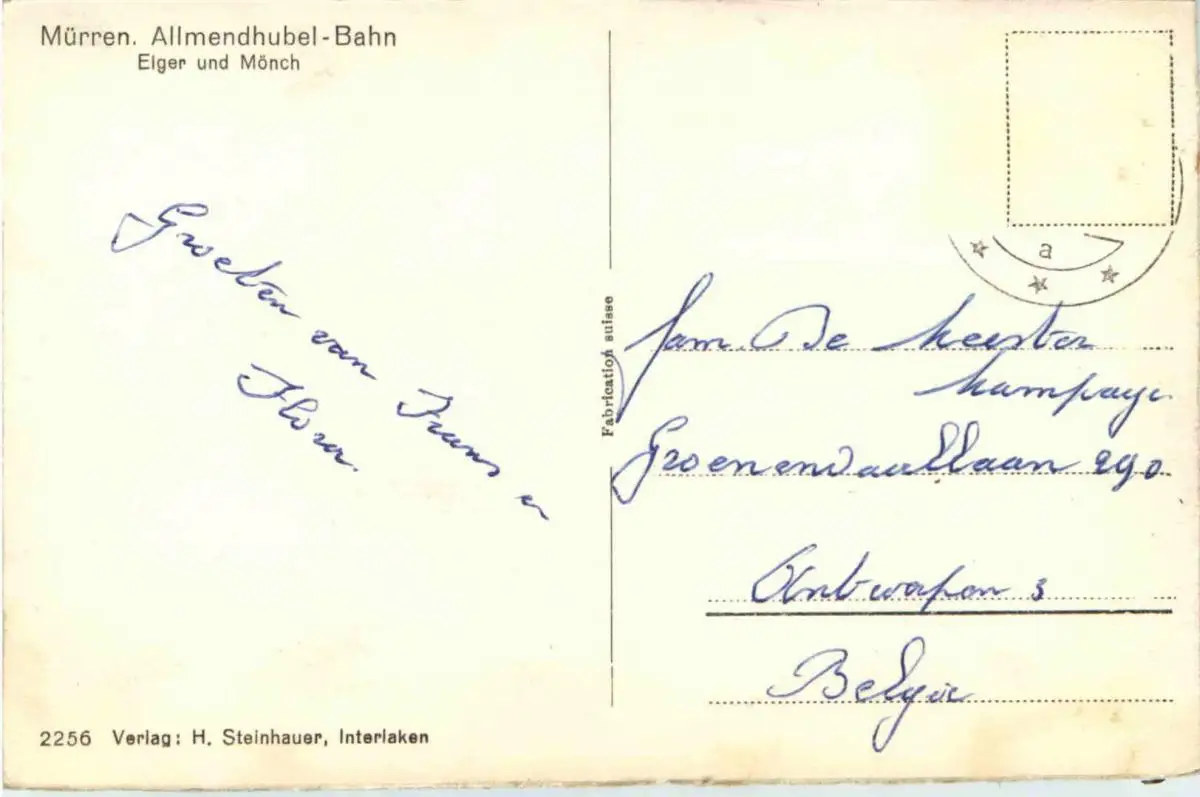 Mürren. Allmendhubel-Bahn
Eiger und Mönch
Groeten van Frans en
Flora.
Fabrication suisse
a
fam. De Meester
Groenendaallaan 290
Antwerpen 3
België
2256 Verlag: H. Steinhauer, Interlaken